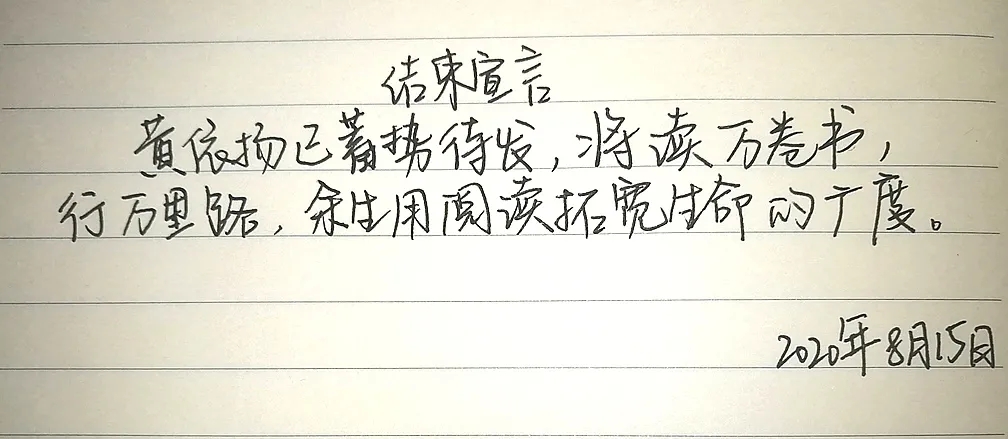 结束宣言
黄依扬已蓄势待发，将读万卷书，
行万里路，余生用阅读拓宽生命的广度。
2020年8月15日